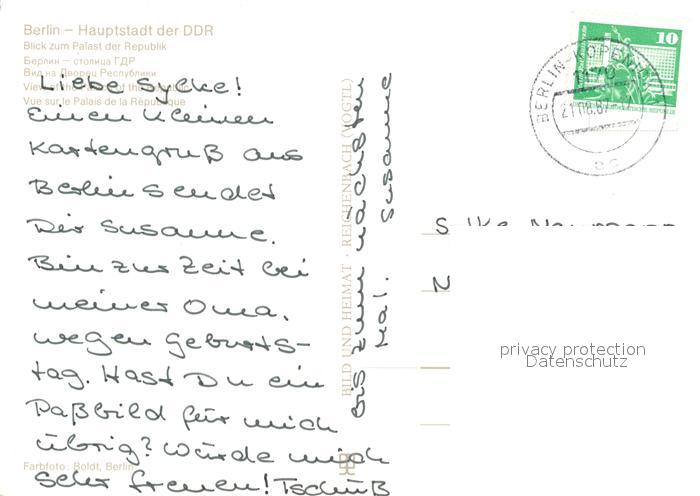 Berlin – Hauptstadt der DDR
Blick zum Palast der Republik
Берлин – столица ГДР
Вид на Дворец Республики
View of the Palace of the
Vue sur le Palais de la République
Liebe Sylke!
Einen kleinen
Kartengruß aus
Berlin sendet
Dir Susanne.
Bin zur Zeit bei
meiner Oma,
wegen Geburts-
tag. Hast Du ein
Paßbild für mich
übrig? Würde mich
sehr freuen! Tschüß
bis zum nächsten
Mal. Susanne
Farbfoto: Boldt, Berlin
BILD UND HEIMAT · REICHENBACH (VOGTL)
10
BERLIN-KÖPENICK
1170
privacy protection
Datenschutz